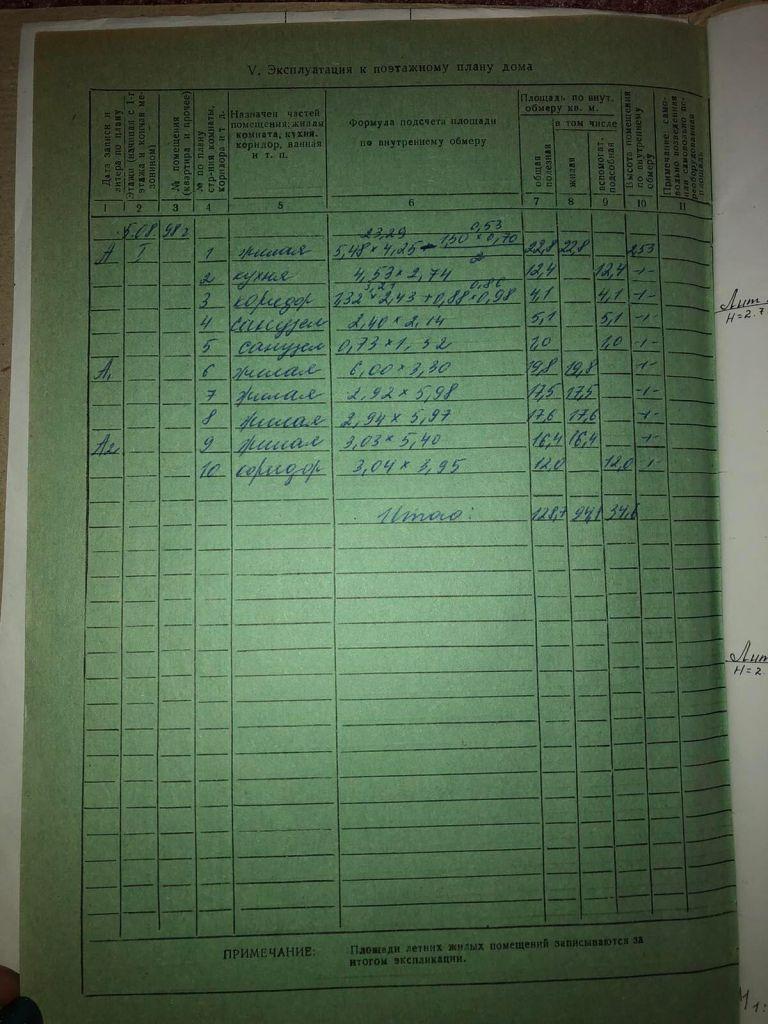 V. Эксплуатация к поэтажному плану дома
Дата записк и литера по плану
Этажи (начиная с 1-г этажа и кончая мезонином)
№ помещения (квартира и прочее)
№ по плану стр-ния комнаты, коридора и т д.
Назначен частей помещения: жилая комната, кухня. коридор, ванная и т. п.
Формула подсчета площади по внутреннему обмеру
Площадь по внут. обмеру кв. м.
в том числе
общая полезная
жилая
вспомогат. подсобная
Высота помещения по внутреннему обмеру
Примечание: само-
1 2 3 4 5 6 7 8 9 10 11
5.08 98г 23,29 0,53
А I 1 жилая 5,48 × 4,25 - 1,50 × 0,70 22,8 22,8 253
2
2 кухня 4,53 × 2,74 12,4 12,4 -"-
3,23 0,86
3 коридор 1,32 × 2,43 + 0,88 × 0,98 4,1 4,1 -"-
4 санузел 2,40 × 2,14 5,1 5,1 -"-
5 санузел 0,73 × 1,32 1,0 1,0 -"-
А1 6 жилая 6,00 × 3,30 19,8 19,8 -"-
7 жилая 2,92 × 5,98 17,5 17,5 -"-
8 жилая 2,94 × 5,97 17,6 17,6 -"-
А2 9 жилая 3,03 × 5,40 16,4 16,4 -"-
10 коридор 3,04 × 3,95 12,0 12,0 -"-
Итого: 128,7 94,1 34,6
ПРИМЕЧАНИЕ: Площади летних жилых помещений записываются за
итогом экспликации.
Лит
H=2.7
Лит
H=2.